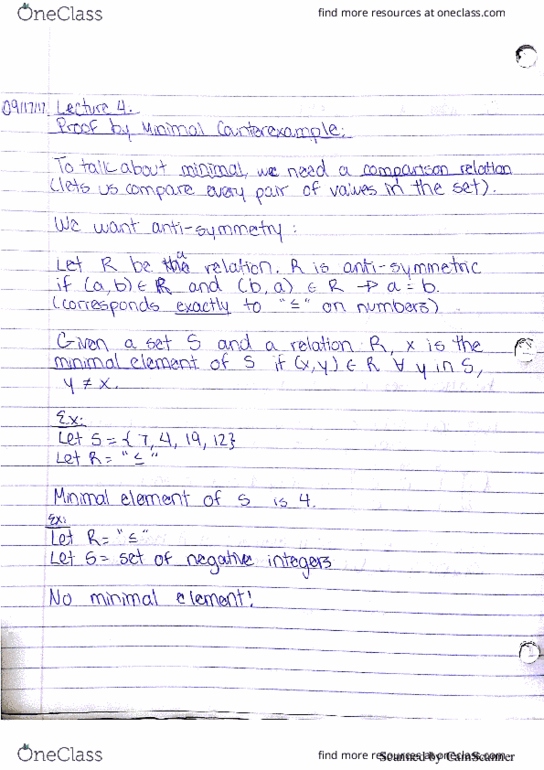 OneClass
find more resources at oneclass.com
09/17/17 Lecture 4.
Proof by Minimal Counterexample:
To talk about minimal, we need a comparison relation
(lets us compare every pair of values in the set).
We want anti-symmetry:
Let R be a relation. R is anti-symmetric
if (a,b) ∈ R and (b,a) ∈ R → a = b.
(corresponds exactly to "≤" on numbers)
Given a set S and a relation R, x is the
minimal element of S if (x,y) ∈ R ∀ y in S,
y ≠ x.
Ex:
Let S = {7, 4, 19, 12}
Let R = "≤"
Minimal element of S is 4.
Ex:
Let R = "≤"
Let S = set of negative integers
No minimal element!
OneClass
find more resources at oneclass.com
Scanned by CamScanner